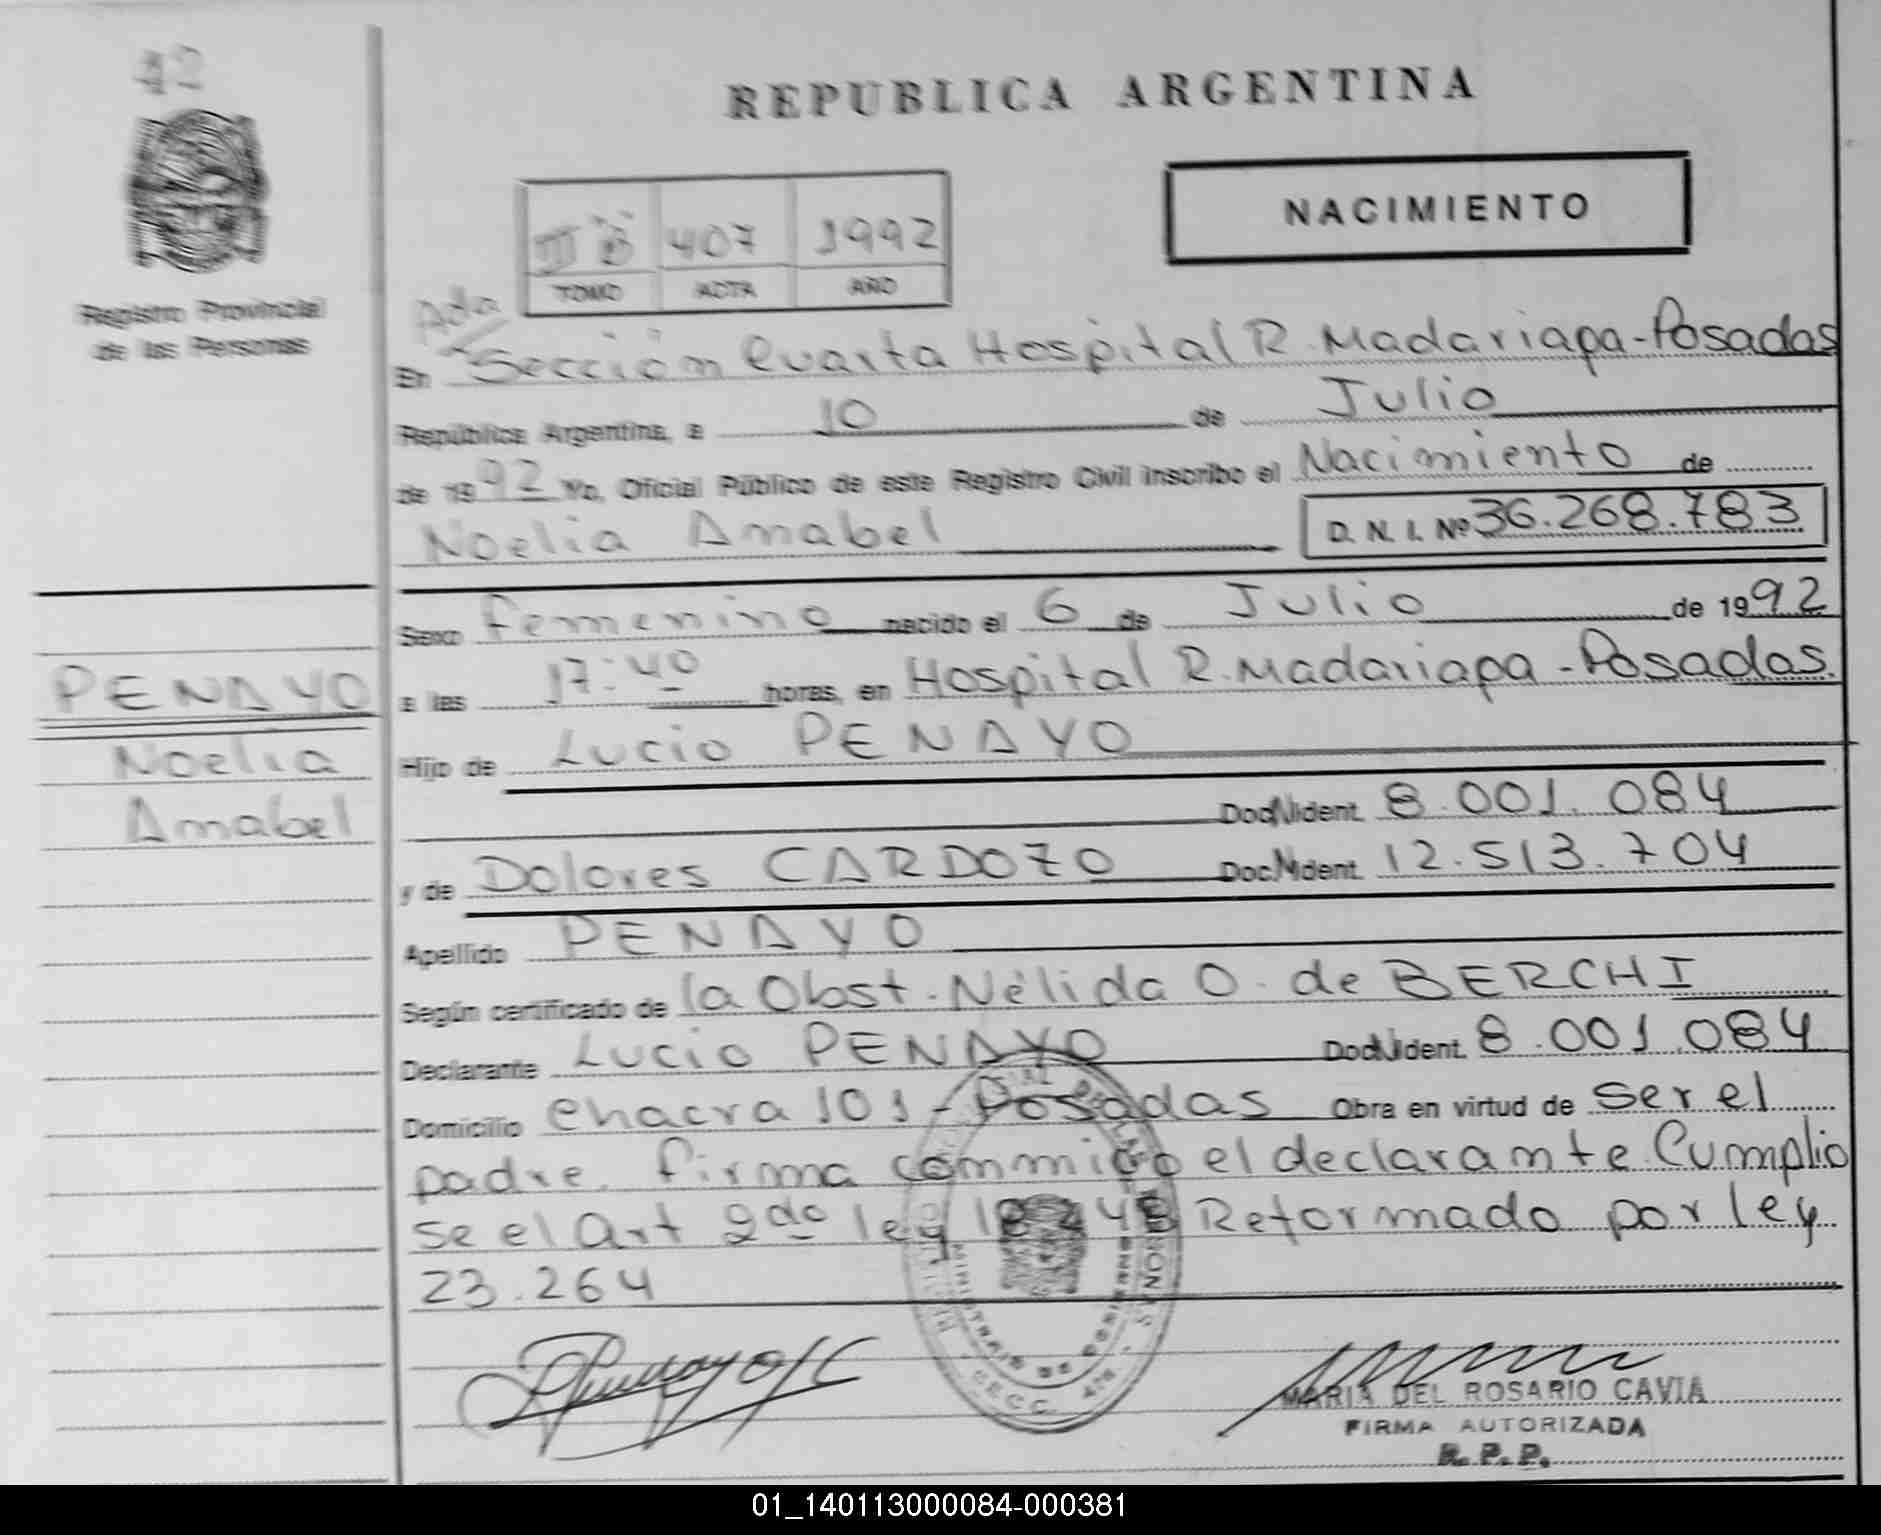 42
REPUBLICA ARGENTINA
NACIMIENTO
III B 407 1992
TOMO ACTA AÑO
Registro Provincial
de las Personas
Pdas
En Sección Cuarta Hospital R. Madariaga-Posadas
República Argentina, a 10 de Julio
de 1992 Yo, Oficial Público de este Registro Civil inscribo el Nacimiento de
Noelia Amabel D. N. I. Nº 36.268.783
Sexo femenino nacido el 6 de Julio de 1992
a las 17:40 horas, en Hospital R. Madariaga - Posadas.
PENAYO
Noelia
Amabel
Hijo de Lucio PENAYO
Doc. ident. 8.001.084
y de Dolores CARDOZO Doc. ident. 12.513.704
Apellido PENAYO
Según certificado de la Obst. Nélida O. de BERCHI
Declarante Lucio PENAYO Doc. ident. 8.001.084
Domicilio chacra 101 - Posadas Obra en virtud de ser el
padre. firma conmigo el declarante Cumplio
se el Art 2do ley Reformado por ley
23.264
MARIA DEL ROSARIO CAVIA
FIRMA AUTORIZADA
R. P. P.
01_140113000084-000381